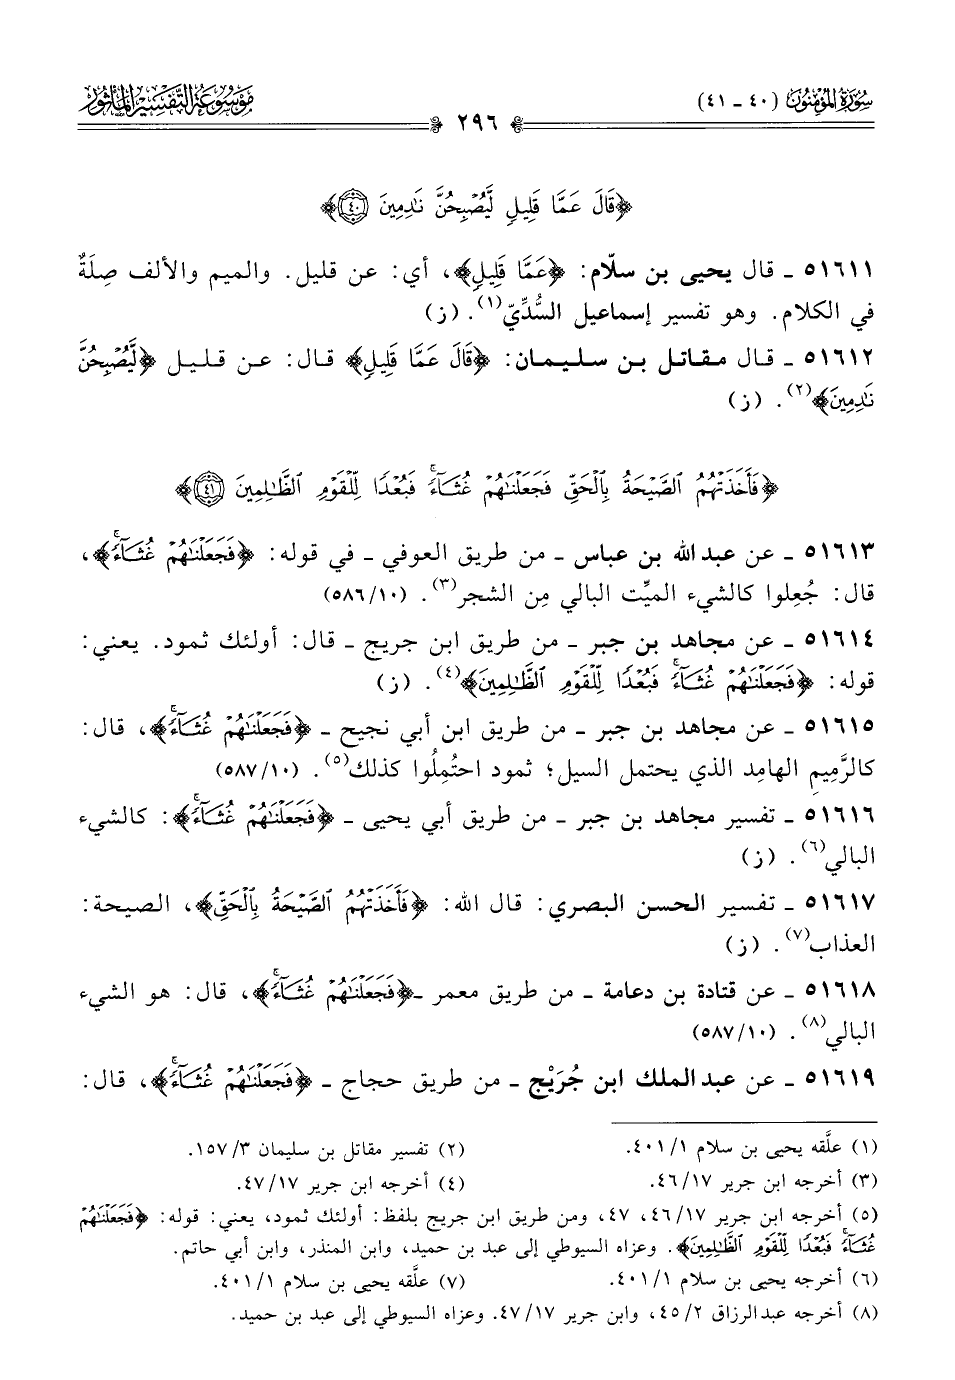 سُورَةُ المُؤْمِنُون (٤٠ - ٤١)
موسوعة التفسير المأثور
٢٩٦
﴿قَالَ عَمَّا قَلِيلٍ لَّيُصْبِحُنَّ نَٰدِمِينَ ٤٠﴾
٥١٦١١ ـ قال يحيى بن سلّام: ﴿عَمَّا قَلِيلٍ﴾، أي: عن قليل. والميم والألف صِلَةٌ
في الكلام. وهو تفسير إسماعيل السُّدِّيّ(١). (ز)
٥١٦١٢ ـ قال مقاتل بن سليمان: ﴿قَالَ عَمَّا قَلِيلٍ﴾ قال: عن قليل ﴿لَّيُصْبِحُنَّ
نَٰدِمِينَ﴾(٢). (ز)
﴿فَأَخَذَتْهُمُ ٱلصَّيْحَةُ بِٱلْحَقِّ فَجَعَلْنَٰهُمْ غُثَآءً ۚ فَبُعْدًا لِّلْقَوْمِ ٱلظَّٰلِمِينَ ٤١﴾
٥١٦١٣ ـ عن عبد الله بن عباس ـ من طريق العوفي ـ في قوله: ﴿فَجَعَلْنَٰهُمْ غُثَآءً ۚ﴾،
قال: جُعِلوا كالشيء الميِّت البالي مِن الشجر(٣). (٥٨٦/١٠)
٥١٦١٤ ـ عن مجاهد بن جبر ـ من طريق ابن جريج ـ قال: أولئك ثمود. يعني:
قوله: ﴿فَجَعَلْنَٰهُمْ غُثَآءً ۚ فَبُعْدًا لِّلْقَوْمِ ٱلظَّٰلِمِينَ﴾(٤). (ز)
٥١٦١٥ ـ عن مجاهد بن جبر ـ من طريق ابن أبي نجيح ـ ﴿فَجَعَلْنَٰهُمْ غُثَآءً ۚ﴾، قال:
كالرَّمِيمِ الهامِد الذي يحتمل السيل؛ ثمود احتُمِلُوا كذلك(٥). (٥٨٧/١٠)
٥١٦١٦ ـ تفسير مجاهد بن جبر ـ من طريق أبي يحيى ـ ﴿فَجَعَلْنَٰهُمْ غُثَآءً ۚ﴾: كالشيء
البالي(٦). (ز)
٥١٦١٧ ـ تفسير الحسن البصري: قال الله: ﴿فَأَخَذَتْهُمُ ٱلصَّيْحَةُ بِٱلْحَقِّ﴾، الصيحة:
العذاب(٧). (ز)
٥١٦١٨ ـ عن قتادة بن دعامة ـ من طريق معمر ـ ﴿فَجَعَلْنَٰهُمْ غُثَآءً ۚ﴾، قال: هو الشيء
البالي(٨). (٥٨٧/١٠)
٥١٦١٩ ـ عن عبد الملك ابن جُرَيْج ـ من طريق حجاج ـ ﴿فَجَعَلْنَٰهُمْ غُثَآءً ۚ﴾، قال:
(١) علَّقه يحيى بن سلام ٤٠١/١.
(٢) تفسير مقاتل بن سليمان ١٥٧/٣.
(٣) أخرجه ابن جرير ٤٦/١٧.
(٤) أخرجه ابن جرير ٤٧/١٧.
(٥) أخرجه ابن جرير ٤٦/١٧، ٤٧، ومن طريق ابن جريج بلفظ: أولئك ثمود، يعني: قوله: ﴿فَجَعَلْنَٰهُمْ
غُثَآءً ۚ فَبُعْدًا لِّلْقَوْمِ ٱلظَّٰلِمِينَ﴾. وعزاه السيوطي إلى عبد بن حميد، وابن المنذر، وابن أبي حاتم.
(٦) أخرجه يحيى بن سلام ٤٠١/١.
(٧) علَّقه يحيى بن سلام ٤٠١/١.
(٨) أخرجه عبدالرزاق ٤٥/٢، وابن جرير ٤٧/١٧. وعزاه السيوطي إلى عبد بن حميد.